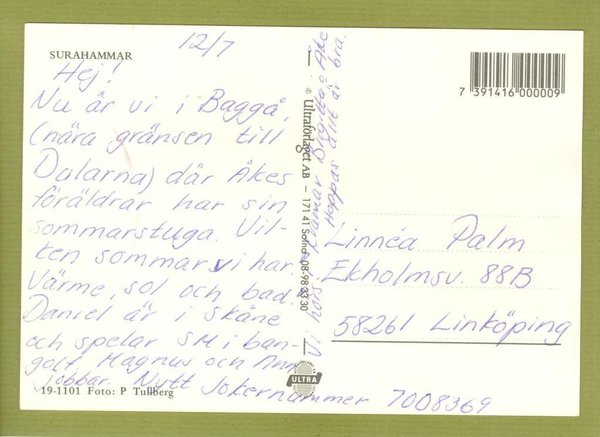 SURAHAMMAR
12/7
Hej!
Nu är vi i Baggå,
(nära gränsen till
Dalarna) där Åkes
föräldrar har sin
sommarstuga. Vil-
ken sommar vi har.
Värme, sol och bad.
Daniel är i Skåne
och spelar SM i ban-
golf. Magnus och Ann
jobbar. Nytt Jokernummer 7008369
Vi hörs Kramar Birgitta o Åke
Hoppas allt är bra.
© Ultraförlaget AB – 171 41 Solna 08-98 33 30
ULTRA
7 391416 000009
Linnéa Palm
Ekholmsv. 88B
58261 Linköping
19-1101 Foto: P Tullberg